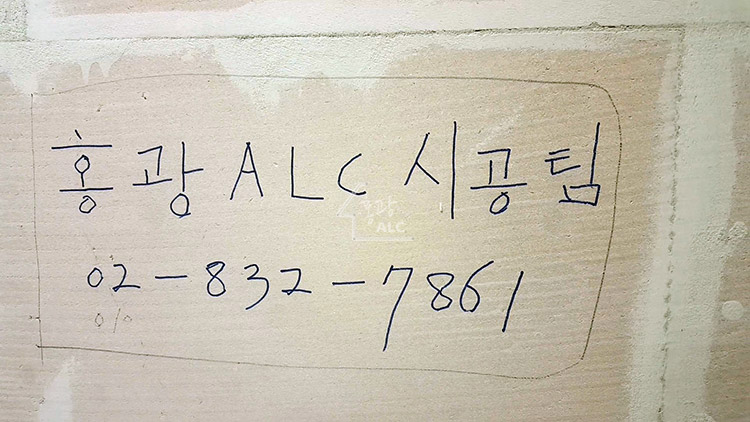 홍광 ALC 시공팀
홍광
ALC
02-832-7861
010